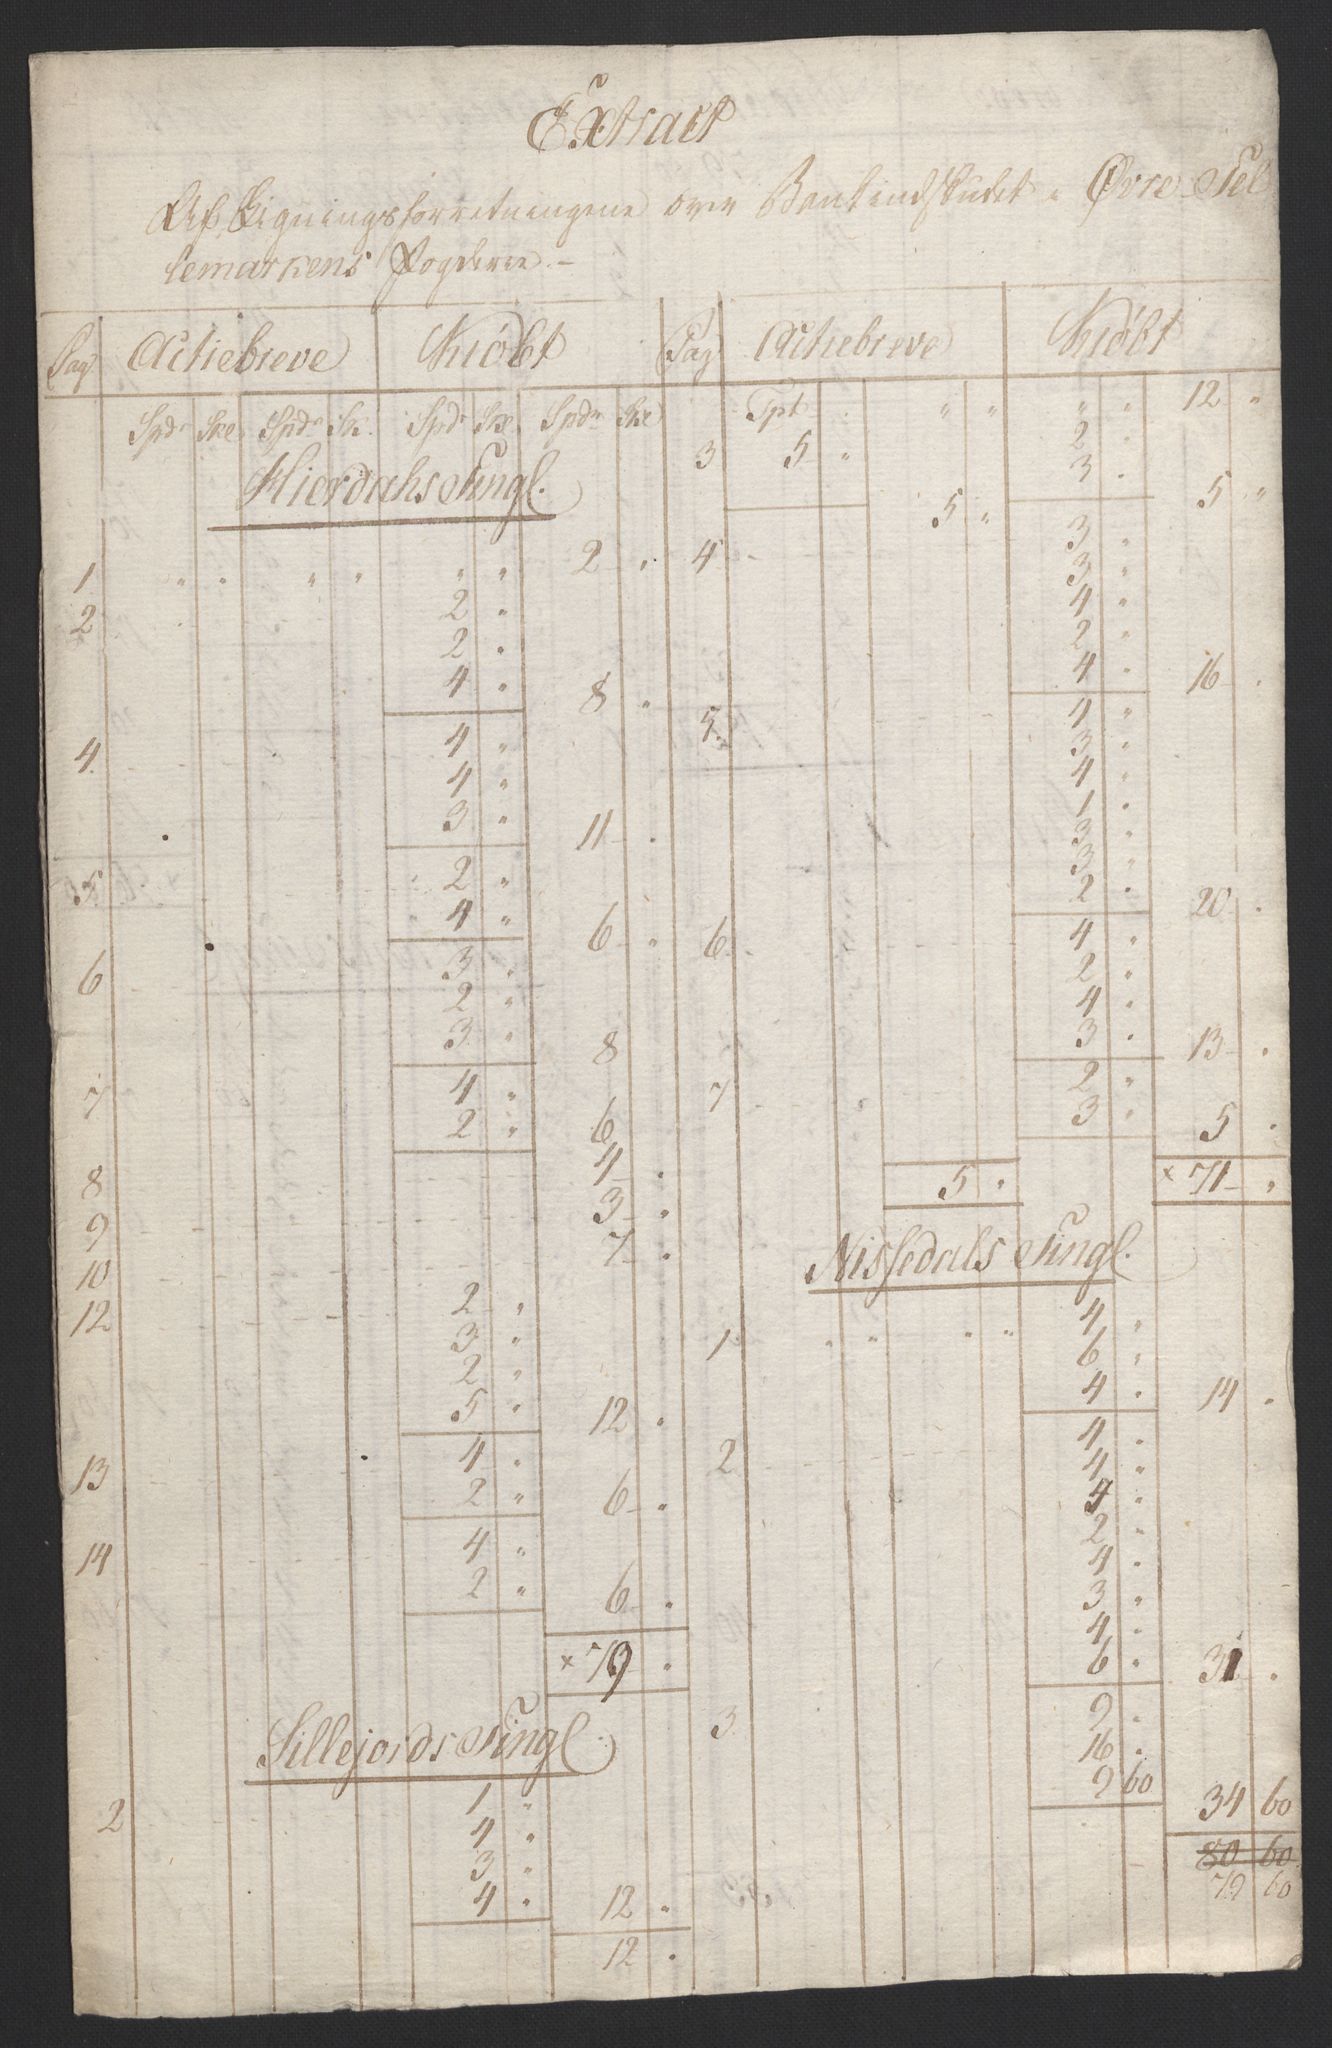 Extract
Af Ligningsforretningene over Bankindskudet i Øvre Tel
lemarkens Fogderie. –
Pag Actiebreve Kiöbt
Spdr Ske Spdr Sk. Spdr Ske Spdr Ske
Hierdahs Tingl.
1 " " " " " " 2 "
2 2 "
2 "
4 " 8 "
4. 4 "
4 "
3 " 11 "
5. 2 "
4 " 6 "
6 3 "
2 "
3 " 8
7 4 "
2 " 6
8 4 "
9 3 "
10 7 "
12 2 "
3 "
2 "
5 " 12 "
13 4 "
2 " 6 "
14 4 "
2 " 6 "
× 79 "
Sillejords Tingl.
2 1 "
4 "
3 "
4 " 12 "
12 "
Pag Actiebreve Kiöbt
Tpt " " " " 12 "
3 5 " 2 "
3 "
5 " 5 "
4 3 "
3 "
4 "
2 "
4 " 16 "
5. 4 "
3 "
4 "
1 "
3 "
3 "
2 " 20 "
6 4 "
2 "
4 "
3 " 13 "
7 2 "
3 " 5 "
5 " × 71 "
Nissedals Tingl.
1 " " " " 4 "
6 "
4 " 14 "
2 4 "
4 "
4 "
2 "
4 "
3 "
4 "
6 " 31 "
3 9 "
16 "
9 60 34 60
80 60
79 60